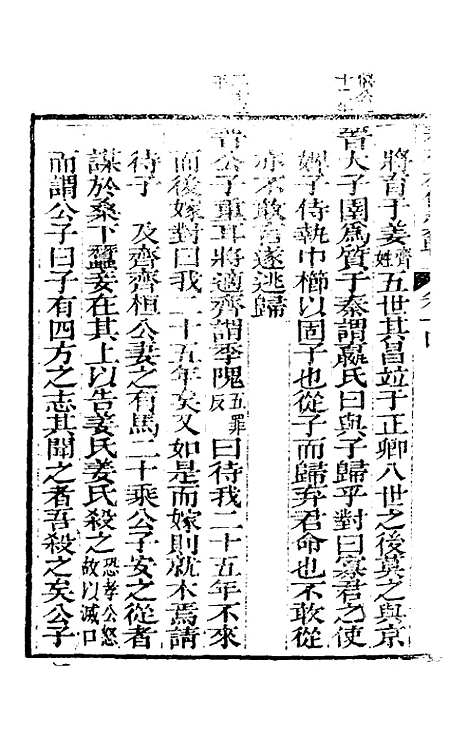 將育于姜齊姓五世其昌竝于正卿八世之後莫之與京
晉大子圉爲質于秦謂嬴氏曰與子歸乎對曰寡君之使
婢子侍執巾櫛以固子也從子而歸弃君命也不敢從
亦不敢言遂逃歸
晉公子重耳將適齊謂季隗五罪反曰待我二十五年不來
而後嫁對曰我二十五年矣又如是而嫁則就木焉請
待子 及齊齊桓公妻之有馬二十乘公子安之從者
謀於桑下蠶妾在其上以告姜氏姜氏殺之恐孝公怒故以滅口
而謂公子曰子有四方之志其聞之者吾殺之矣公子